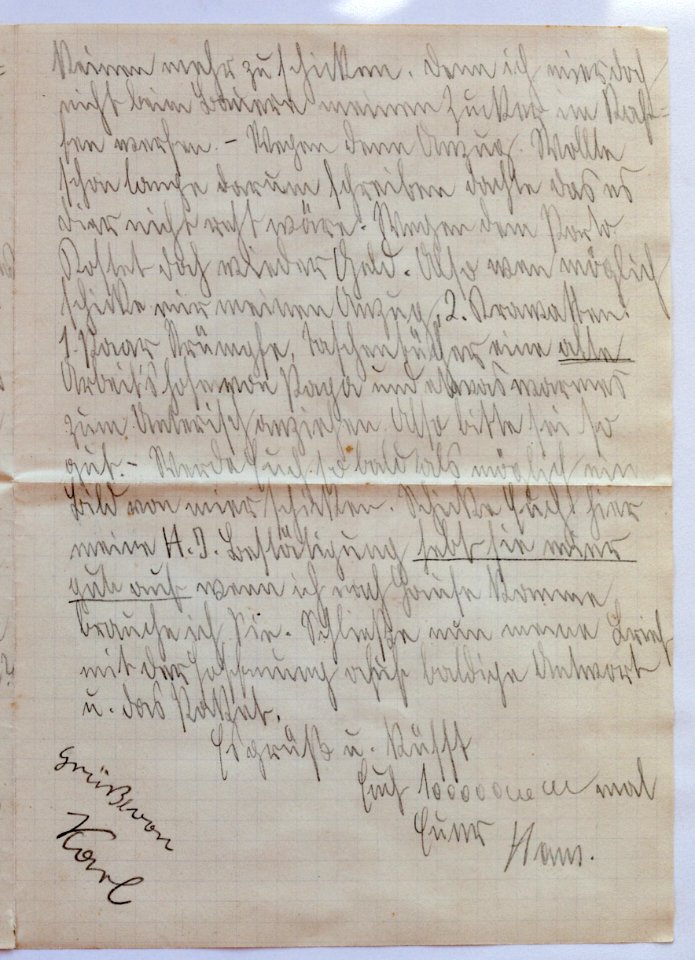 Keinen mehr zu schicken. Denn ich mier doch
nicht beim Bauern meinen Zucker im Kaf-
fee werfen. – Wegen denn Anzug. Wollte
schon lange darum schreiben dachte das es
dier nicht recht wäre. Wegen dem Porto
Kostet doch wieder Geld. Also wen möglich
schicke mir meinen Anzug, 2. Krawatten.
1. Paar Strümpfe, Taschentücher eine alte
Arbeitshose von Papa und etwas warmes
zum Unterisch anziehen. Also bitte sei so
gut. – Werde Euch so bald als möglich ein
Bild von mier schicken. Schicke Euch hier
meine H.J. Bestätigung hebt sie mier
gut auf wenn ich nach Hause Komme,
brauche ich Sie. Schließe nun meine Brief
mit der Hoffnung auf baldige Antwort
u. das Paket.
Es grüß u. Küsst
Euch mal
Euer Hans.
Grüße von
Karl